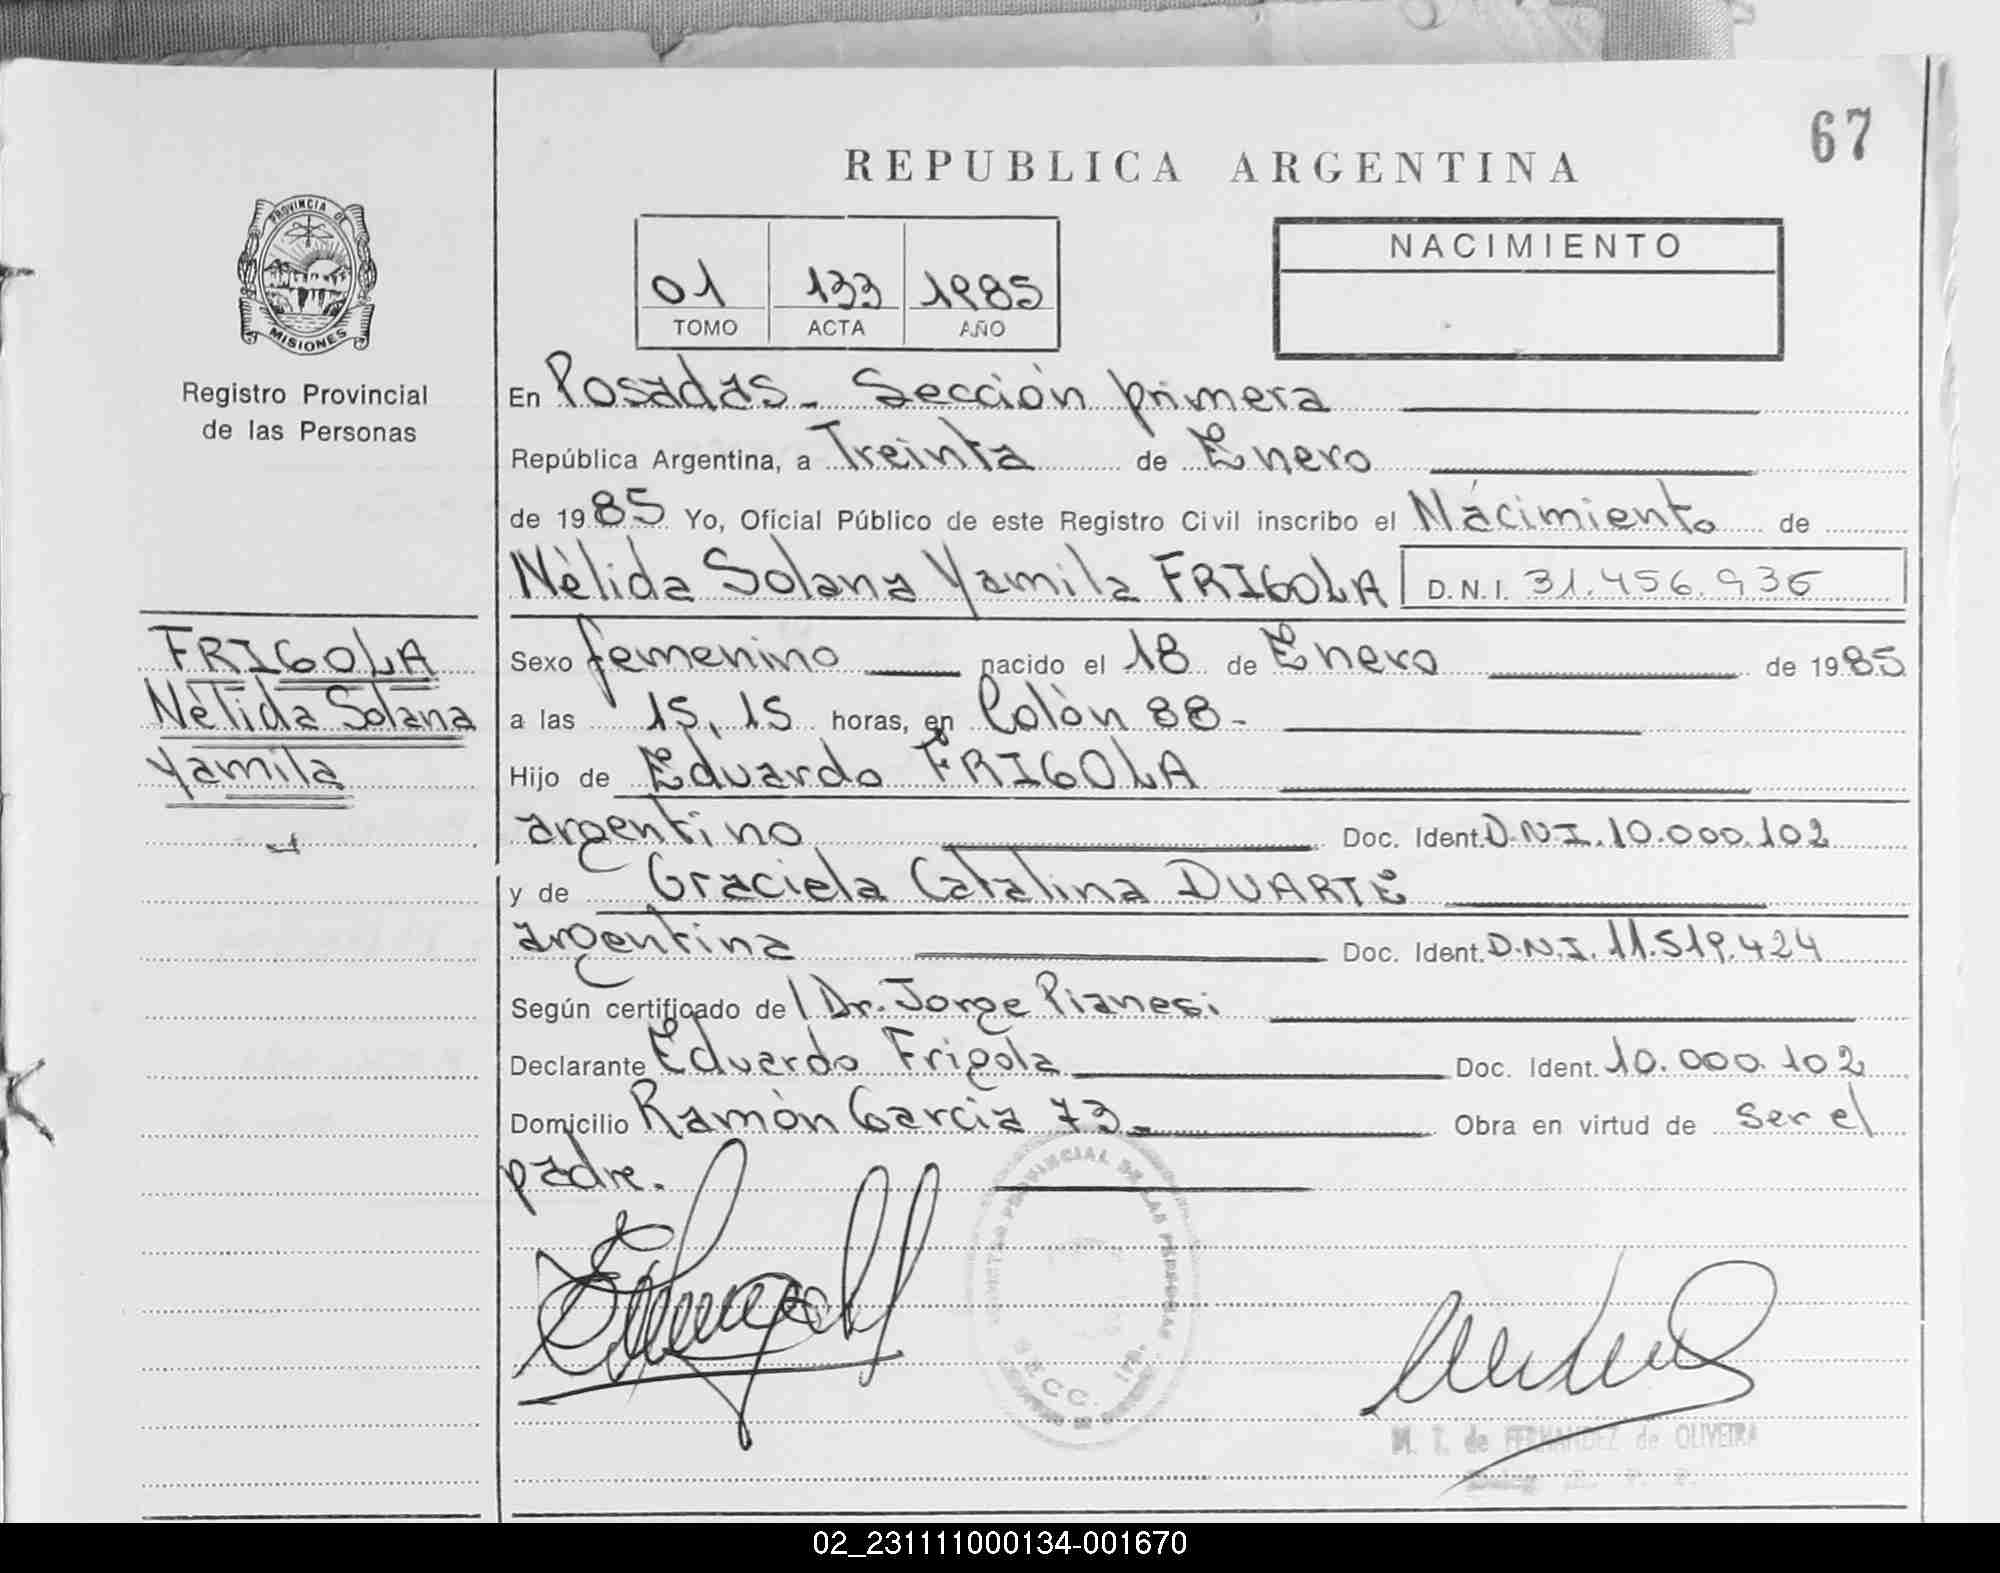 67
REPUBLICA ARGENTINA
PROVINCIA DE
MISIONES
Registro Provincial
de las Personas
01 133 1985
TOMO ACTA AÑO
NACIMIENTO
En Posadas - Sección primera
República Argentina, a Treinta de Enero
de 1985 Yo, Oficial Público de este Registro Civil inscribo el Nacimiento de
Nèlida Solana Yamila FRIGOLA D.N.I. 31.456.936
FRIGOLA
Nèlida Solana
Yamila
Sexo femenino nacido el 18 de Enero de 1985
a las 15,15 horas, en Colòn 88-
Hijo de Eduardo FRIGOLA
argentino Doc. Ident. D.N.I. 10.000.102
y de Graciela Catalina DUARTE
argentina Doc. Ident. D.N.I. 11.519.424
Según certificado de / Dr. Jorge Pianesi
Declarante Eduardo Frigola Doc. Ident. 10.000.102
Domicilio Ramòn Garcia 73- Obra en virtud de ser el
padre.
PROVINCIAL DE LAS PERSONAS
SECC. 1ra.
M. T. de FERNANDEZ de OLIVEIRA
02_231111000134-001670